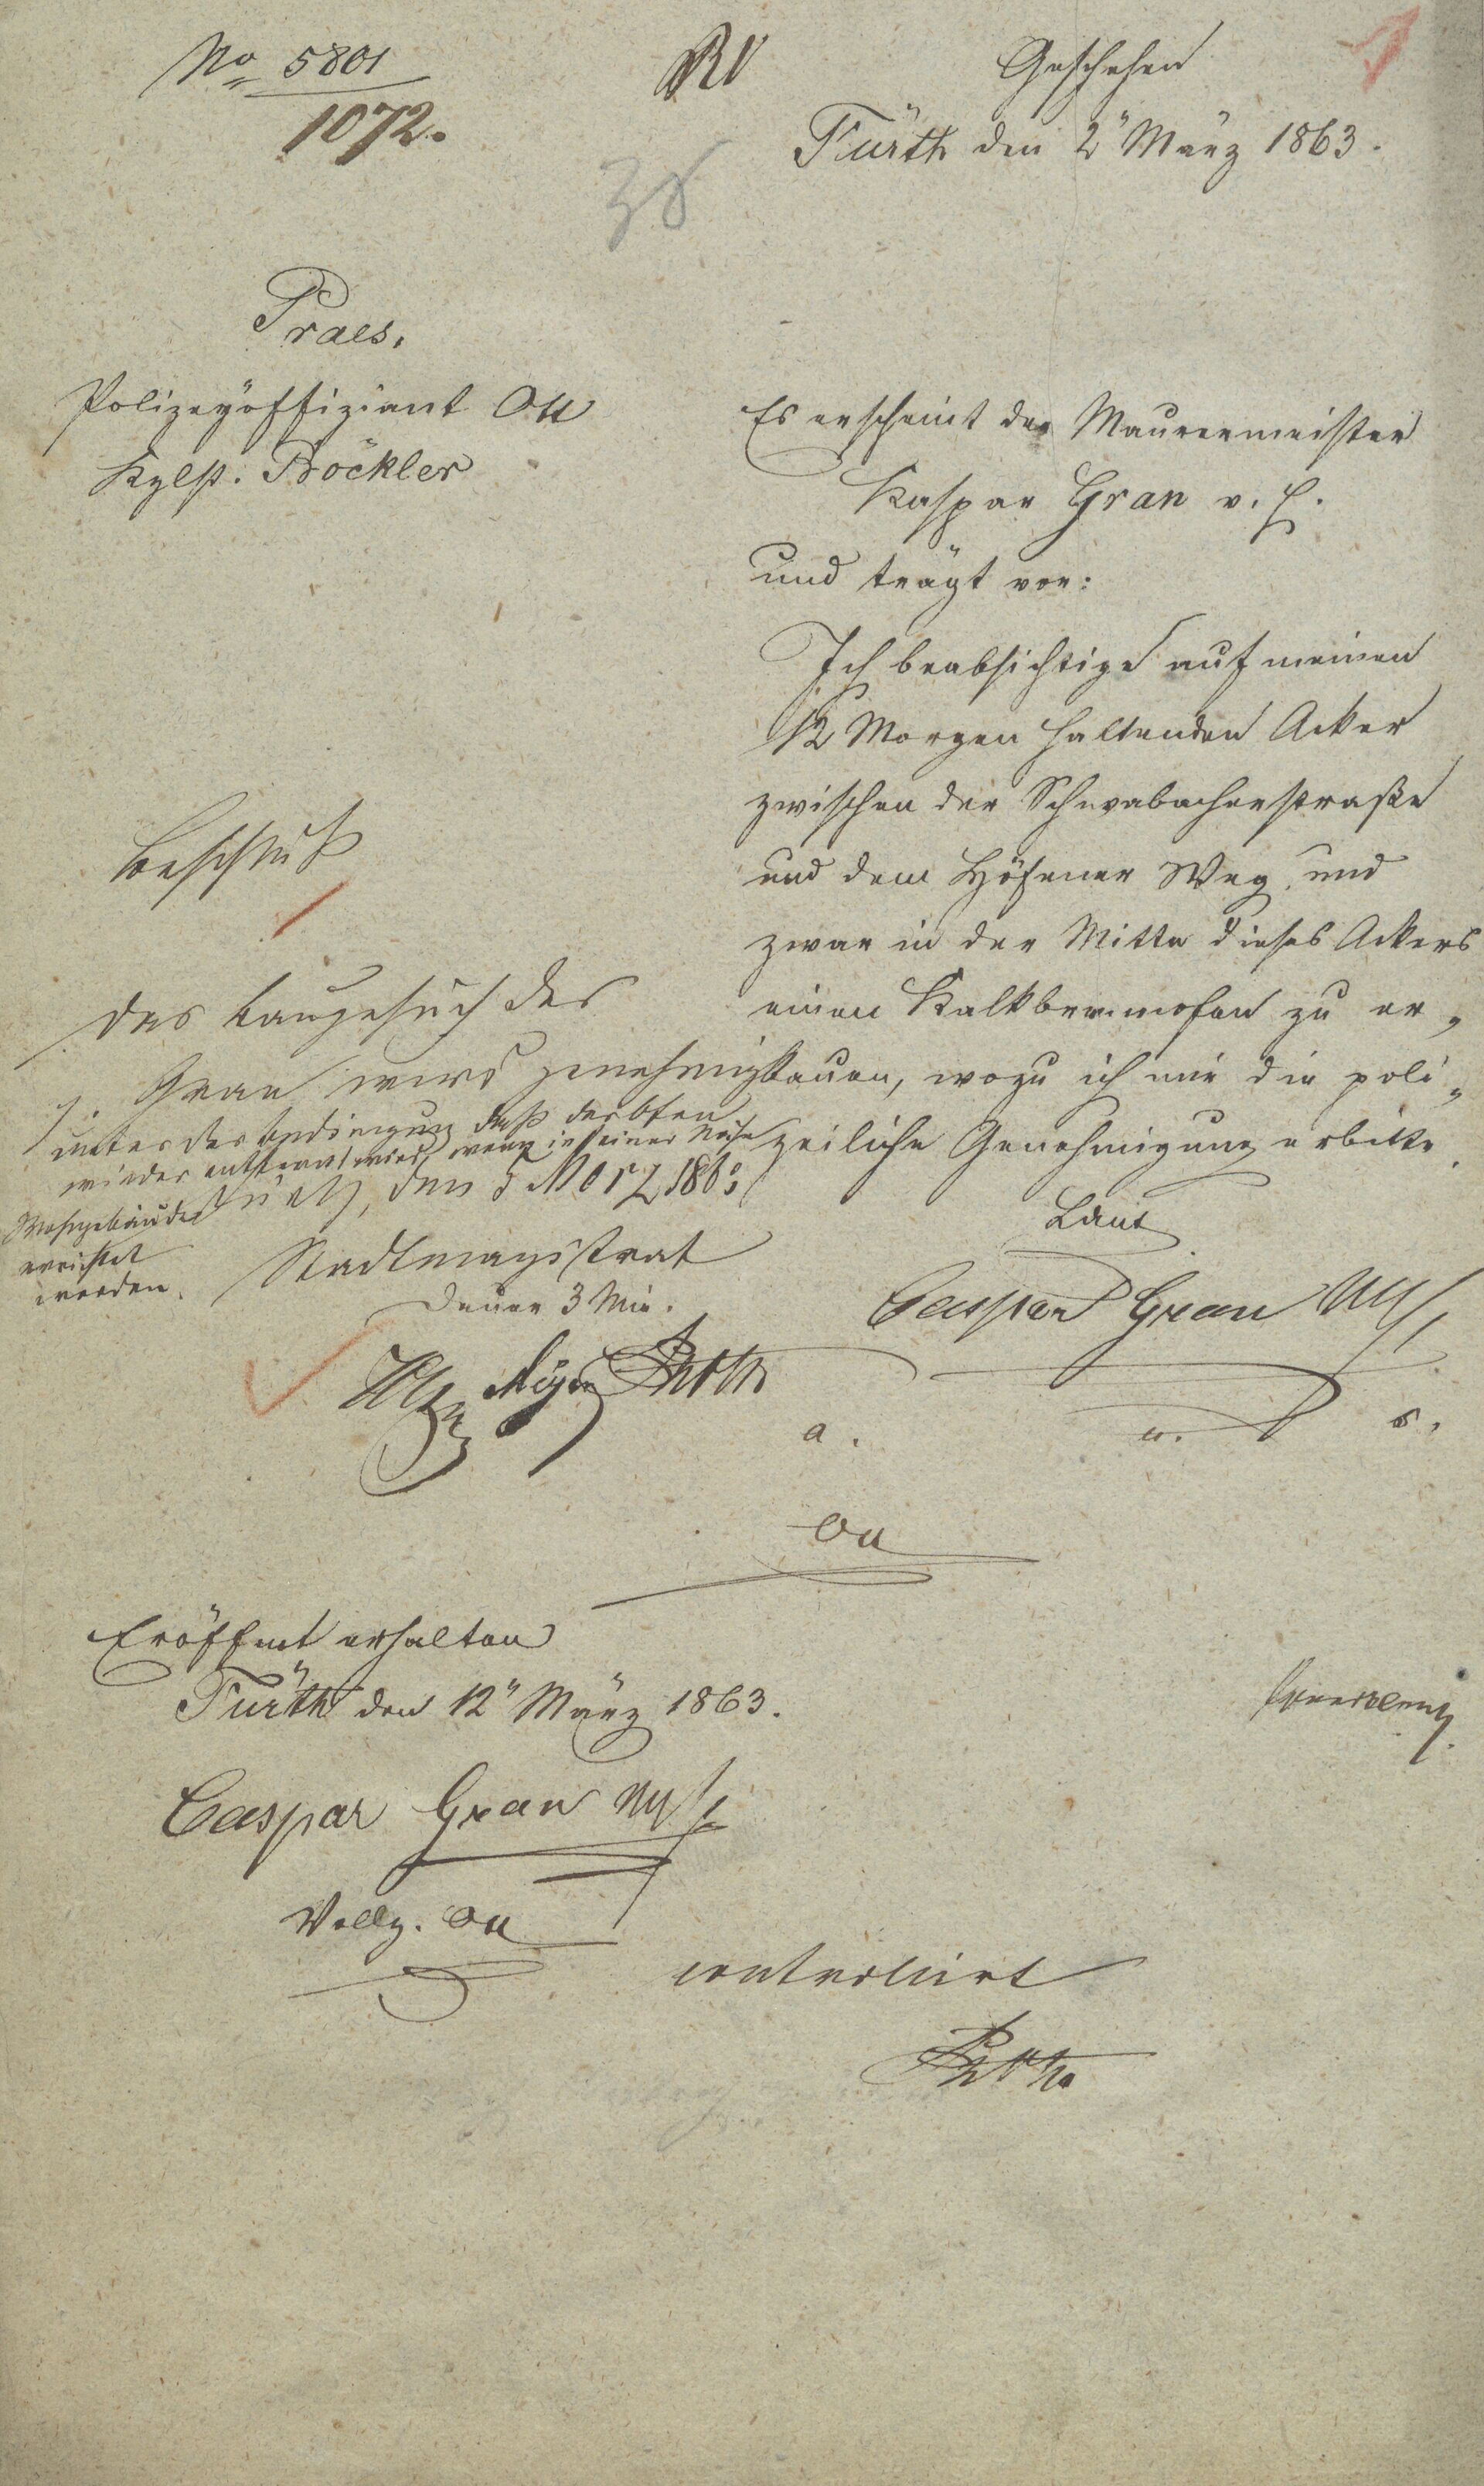 No 5801
1072.
RV
Geschehen
Fürth den 2" März 1863.
38
Praes.
Polizeyoffiziant Ott
Kzlst. Böckler
Es erscheint der Maurermeister
Kaspar Gran v. h.
und trägt vor:
Ich beabsichtige auf meinen
12 Morgen haltenden Acker
zwischen der Schwabacherstraße
und dem Höfener Weg, und
zwar in der Mitte dieses Ackers
einen Kalkbrennofen zu er„
bauen, wozu ich mir die poli„
zeiliche Genehmigung erbitte.
Laut
Caspar Gran
a. u. s.
Ott
Beschluß
Das Baugesuch des
p. Gran wird genehmigt
unter der Bedingung daß der Ofen
wieder entfernt wird, wenn in seiner Nähe
Wohngebäude
errichtet
werden.
Fürth, den 5 März 1863
Stadtmagistrat
Dauer 3 Min.
Eröffnet erhalten
Fürth den 12" März 1863.
Caspar Gran
Vollz. Ott
controllirt